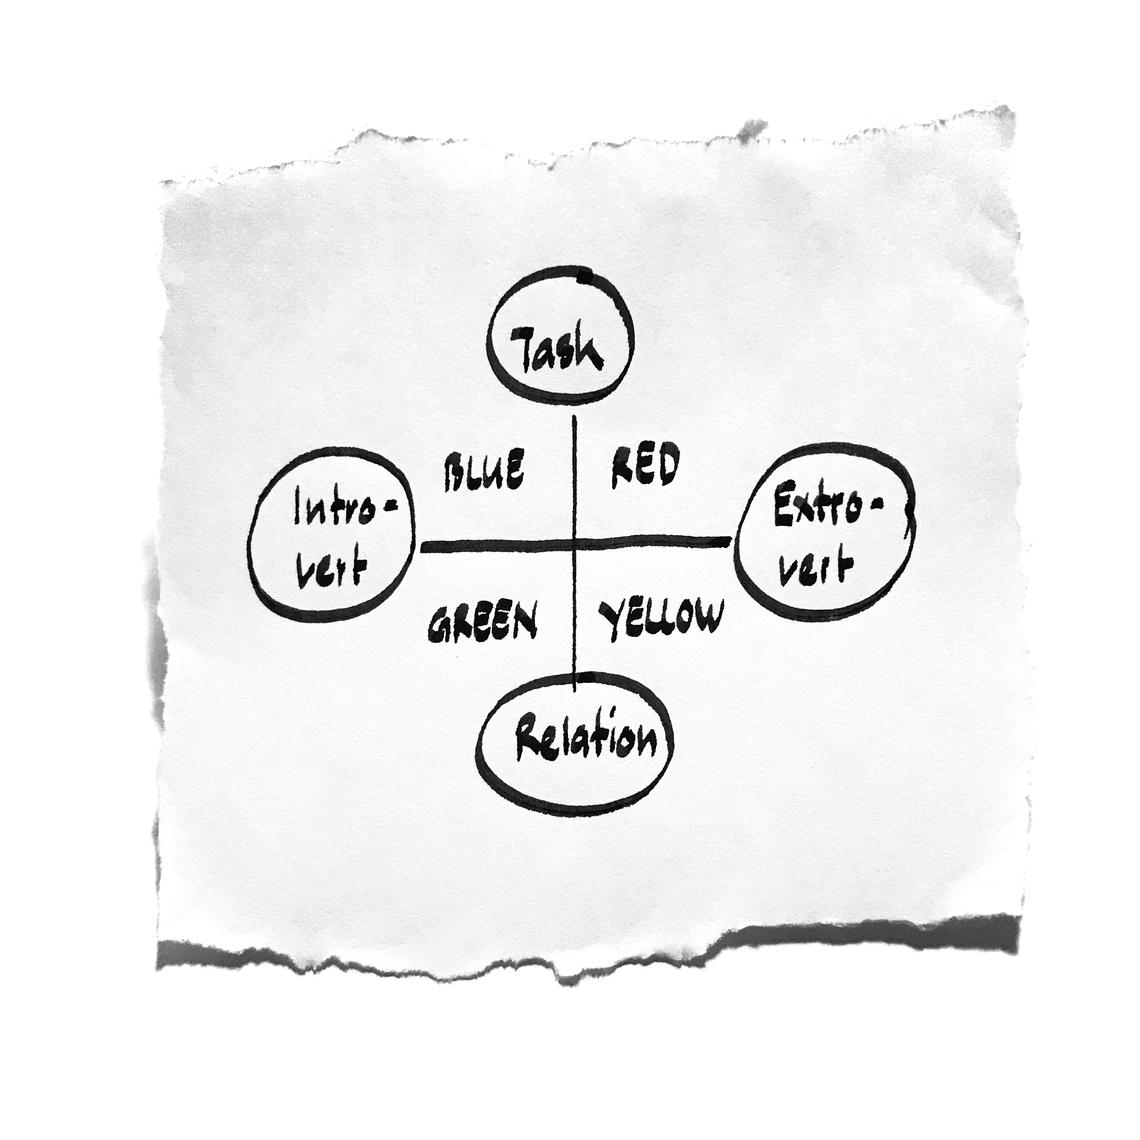 Task
BLUE RED
Intro-
vert
Extro-
vert
GREEN YELLOW
Relation